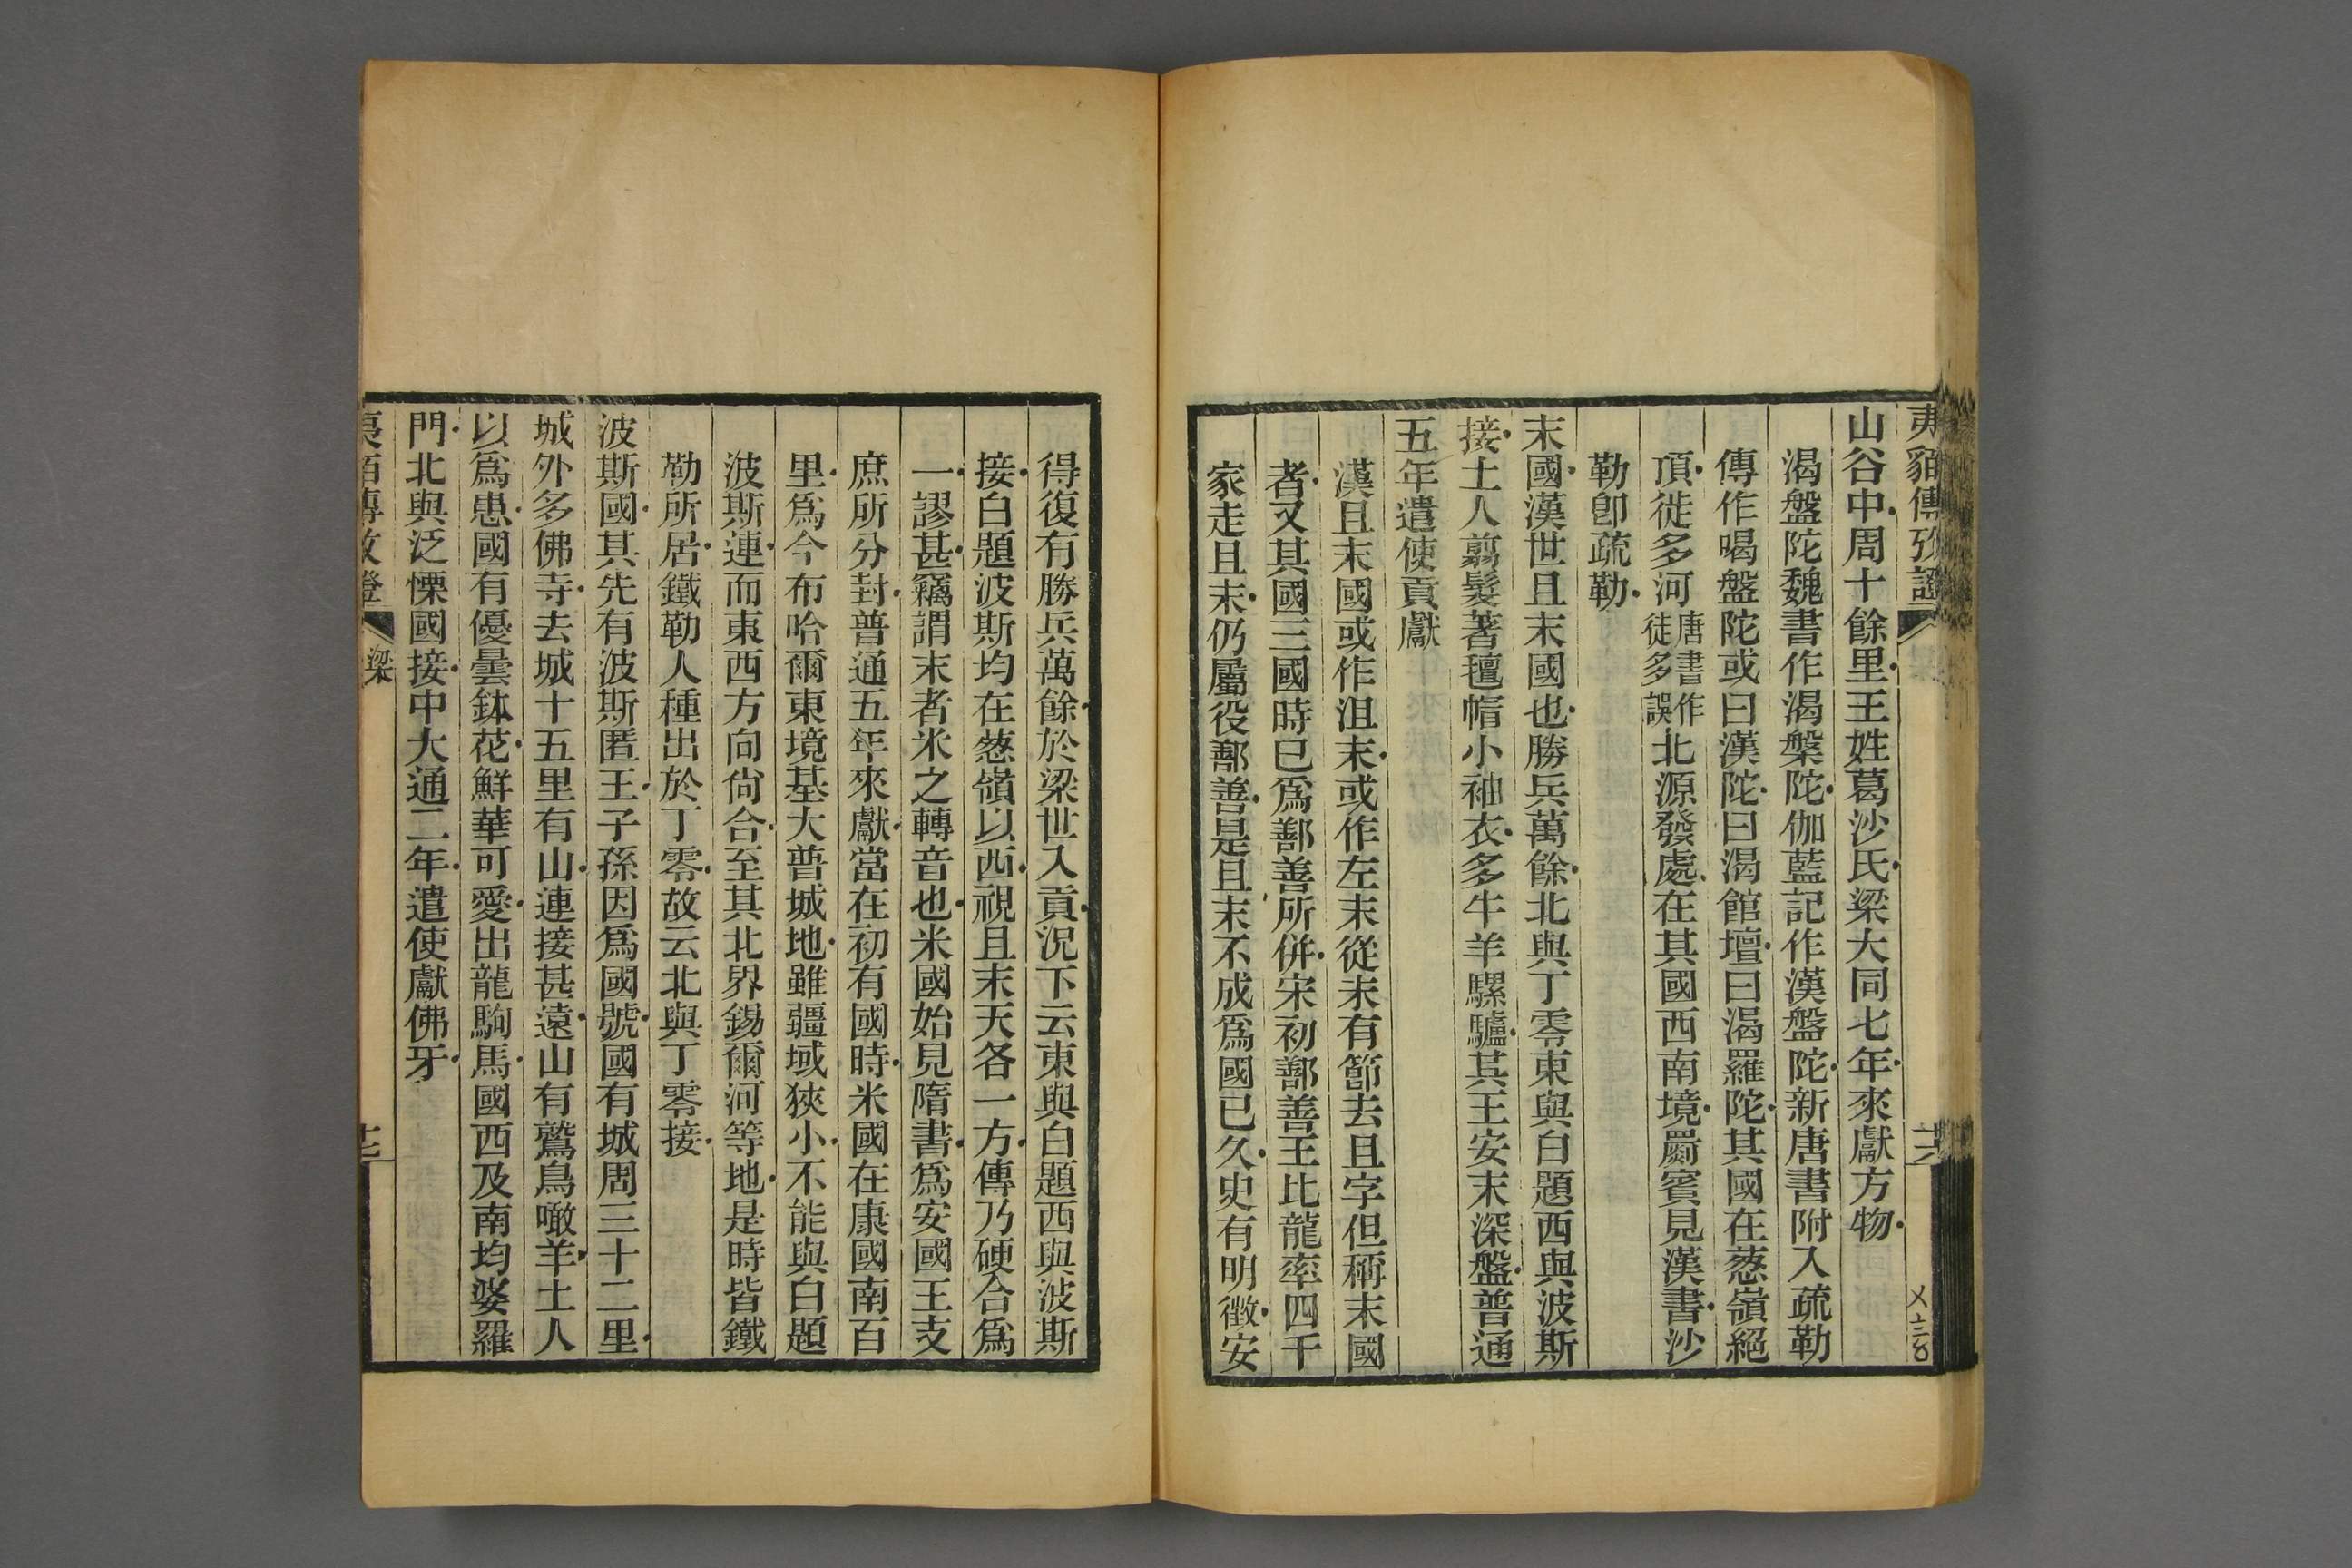 夷貊傳攷證
山谷中周十餘里王姓葛沙氏梁大同七年來獻方物
渴盤陀魏書作渴槃陀伽藍記作漢盤陀新唐書附入疏勒
傳作喝盤陀或曰漢陀曰渴館壇曰渴羅陀其國在葱嶺絕
頂徙多河唐書作徒多誤作北源發處在其國西南境罽賓見漢書沙
勒卽疏勒
末國漢世且末國也勝兵萬餘北與丁零東與白題西與波斯
接土人翦髮著氊帽小袖衣多牛羊騾驢其王安末深盤普通
五年遣使貢獻
漢且末國或作沮末或作左末從未有節去且字但稱末國
者又其國三國時已爲鄯善所併宋初鄯善王比龍率四千
家走且末仍屬役鄯善是且末不成爲國已久史有明徵安
得復有勝兵萬餘於梁世入貢況下云東與白題西與波斯
接白題波斯均在葱嶺以西視且末天各一方傳乃硬合爲
一謬甚竊謂末者米之轉音也米國始見隋書爲安國王支
庶所分封普通五年來獻當在初有國時米國在康國南百
里爲今布哈爾東境基大普城地雖疆域狹小不能與白題
波斯連而東西方向尙合至其北界錫爾河等地是時皆鐵
勒所居鐵勒人種出於丁零故云北與丁零接
波斯國其先有波斯匿王子孫因爲國號國有城周三十二里
城外多佛寺去城十五里有山連接甚遠山有鷲鳥噉羊土人
以爲患國有優曇鉢花鮮華可愛出龍駒馬國西及南均婆羅
門北與泛慄國接中大通二年遣使獻佛牙
夷貊傳攷證
梁